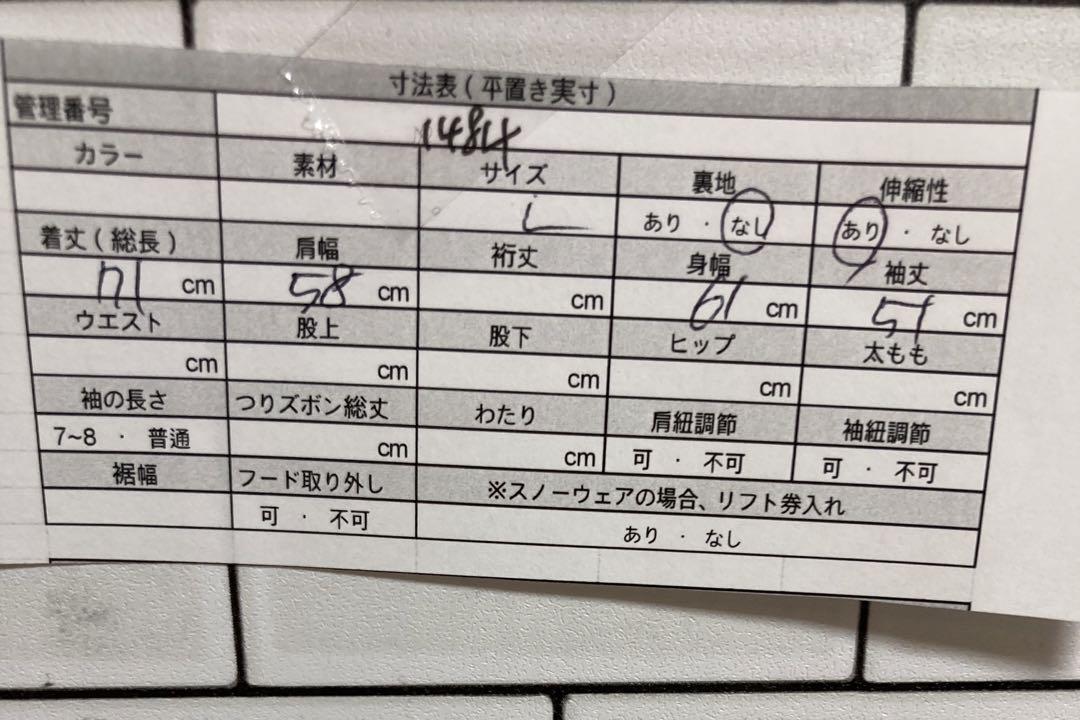 寸法表(平置き実寸)
管理番号 1484
カラー 素材 サイズ 裏地 伸縮性
L あり ・ なし あり ・ なし
着丈(総長) 肩幅 裄丈 身幅 袖丈
71 cm 58 cm cm 61 cm 51 cm
ウエスト 股上 股下 ヒップ 太もも
cm cm cm cm cm
袖の長さ つりズボン総丈 わたり 肩紐調節 袖紐調節
7~8 ・ 普通 cm cm 可 ・ 不可 可 ・ 不可
裾幅 フード取り外し ※スノーウェアの場合、リフト券入れ
可 ・ 不可 あり ・ なし